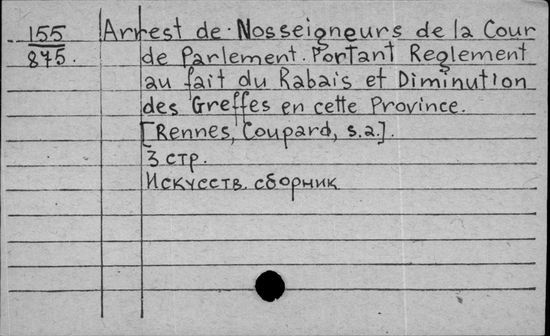 155 Arrest de Nosseigneurs de la Cour
875. de Parlement. Portant Reglement
au fait du Rabais et Diminution
des Greffes en cette Province.
[Rennes, Coupard, s.a.].
3 стр.
Искусств. сборник